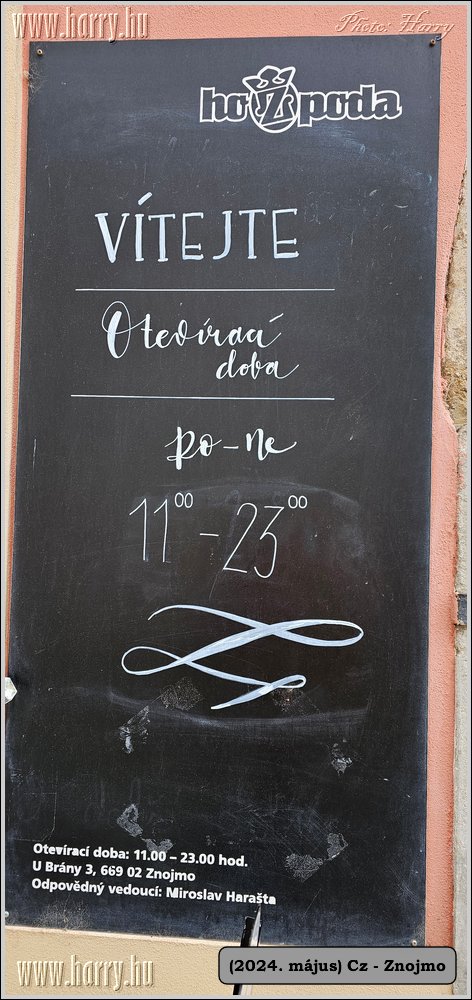 www.harry.hu
Photo: Harry
hoŽpoda
VÍTEJTE
Otevírací
doba
po-ne
11⁰⁰ - 23⁰⁰
Otevírací doba: 11.00 – 23.00 hod.
U Brány 3, 669 02 Znojmo
Odpovědný vedoucí: Miroslav Harašta
www.harry.hu
(2024. május) Cz - Znojmo